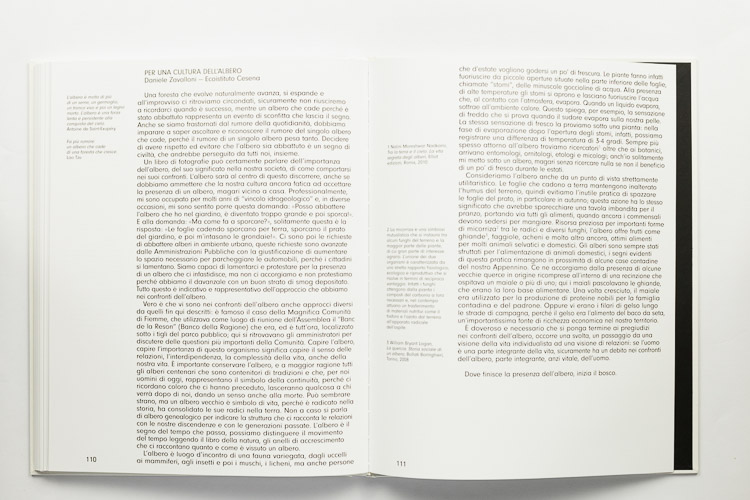 PER UNA CULTURA DELL'ALBERO
Daniele Zavalloni – Ecoistituto Cesena
L'albero è molto di più
Antoine de Saint-Exupéry
Fa più rumore
un albero che cade
di una foresta che cresce
Lao Tzu
Una foresta che evolve naturalmente avanza, si espande e
all'improvviso ci ritroviamo circondati, sicuramente non riusciremo
a ricordarci quando è successo, mentre un albero che cade perché è
stato abbattuto rappresenta un evento di sconfitta che lascia il segno.
Anche se siamo frastornati dal rumore della quotidianità, dobbiamo
imparare a saper ascoltare e riconoscere il rumore del singolo albero
che cade, perché il rumore di un singolo albero pesa tanto. Decidere
di avere rispetto ed evitare che l'albero sia abbattuto è un segno di
civiltà, che andrebbe perseguito da tutti noi, insieme.
Un libro di fotografie può certamente parlare dell'importanza
dell'albero, del suo significato nella nostra società, di come comportarsi
nei suoi confronti. L'albero sarà al centro di questo discorrere, anche se
dobbiamo ammettere che la nostra cultura ancora fatica ad accettare
la presenza di un albero, magari vicino a casa. Professionalmente,
mi sono occupato per molti anni di "vincolo idrogeologico" e, in diverse
occasioni, mi sono sentito porre questa domanda: «Posso abbattere
l'albero che ho nel giardino, è diventato troppo grande e poi sporca!».
E alla domanda: «Ma come fa a sporcare?», solitamente questa è la
risposta: «Le foglie cadendo sporcano per terra, sporcano il prato
del giardino, e poi m'intasano le grondaie!». Ci sono poi le richieste
di abbattere alberi in ambiente urbano, queste richieste sono avanzate
dalle Amministrazioni Pubbliche con la giustificazione di aumentare
lo spazio necessario per parcheggiare le automobili, perché i cittadini
si lamentano. Siamo capaci di lamentarci e protestare per la presenza
di un albero che ci infastidisce, ma non ci accorgiamo e non protestiamo
perché abbiamo il davanzale con un buon strato di smog depositato.
Tutto questo è indicativo e rappresentativo dell'approccio che abbiamo
nei confronti dell'albero.
Vero è che vi sono nei confronti dell'albero anche approcci diversi
da quelli fin qui descritti: è famoso il caso della Magnifica Comunità
di Fiemme, che utilizzava come luogo di riunione dell'Assemblea il "Banc
de la Reson" (Banco della Ragione) che era, ed è tutt'ora, localizzato
sotto i tigli del parco pubblico, qui si ritrovavano gli amministratori per
discutere delle questioni più importanti della Comunità. Capire l'albero,
capire l'importanza di questo organismo significa capire il senso delle
relazioni, l'interdipendenza, la complessità della vita, anche della
nostra vita. È importante conservare l'albero, e a maggior ragione tutti
gli alberi centenari che sono contenitori di tradizioni e che, per noi
uomini di oggi, rappresentano il simbolo della continuità, perché ci
ricordano coloro che ci hanno preceduto, lasceranno qualcosa a chi
verrà dopo di noi, dando un senso anche alla morte. Può sembrare
strano, ma un albero vecchio è simbolo di vita, perché è radicato nella
storia, ha consolidato le sue radici nella terra. Non a caso si parla
di albero genealogico per indicare la struttura che ci racconta le relazioni
con le nostre discendenze e con le generazioni passate. L'albero è il
segno del tempo che passa, possiamo distinguere il movimento
del tempo leggendo il libro della natura, gli anelli di accrescimento
che ci raccontano quanto e come è vissuto un albero.
L'albero è luogo d'incontro di una fauna variegata, dagli uccelli
ai mammiferi, agli insetti e poi i muschi, i licheni, ma anche persone
110
che d'estate vogliono godersi un po' di frescura. Le piante fanno infatti
fuoriuscire da piccole aperture situate nella parte inferiore delle foglie,
chiamate "stomi", delle minuscole goccioline di acqua. Alla presenza
di alte temperature gli stomi si aprono e lasciano fuoriuscire l'acqua
che, al contatto con l'atmosfera, evapora. Quando un liquido evapora,
sottrae all'ambiente calore. Questo spiega, per esempio, la sensazione
di freddo che si prova quando il sudore evapora sulla nostra pelle.
La stessa sensazione di fresca la proviamo sotto una pianta: nella
fase di evaporazione dopo l'apertura degli stomi, infatti, possiamo
registrare una differenza di temperatura di 3-4 gradi. Sempre più
spesso attorno all'albero troviamo cercatori¹ oltre che di botanici,
arrivano entomologi, ornitologi, etologi e micologi; anch'io solitamente
mi metto sotto un albero, magari senza ricercare nulla se non il beneficio
di un po' di fresco durante le estati.
Consideriamo l'albero anche da un punto di vista strettamente
utilitaristico. Le foglie che cadono a terra mantengono inalterato
l'humus del terreno, quindi evitiamo l'inutile pratica di spazzare
le foglie dal prato, in particolare in autunno, questa azione ha lo stesso
significato che avrebbe sparecchiare una tavola imbandita per il
pranzo, portando via tutti gli alimenti, quando ancora i commensali
devono sedersi per mangiare. Risorsa preziosa per importanti forme
di micorriza² tra le radici e diversi funghi, l'albero offre frutti come
ghiande³, faggiole, acheni e molto altro ancora, ottimi alimenti
per molti animali selvatici e domestici. Gli alberi sono sempre stati
sfruttati per l'alimentazione di animali domestici, i segni evidenti
di questa pratica rimangono in prossimità di alcune case contadine
del nostro Appennino. Ce ne accorgiamo dalla presenza di alcune
vecchie querce in origine ricomprese all'interno di una recinzione che
ospitava un maiale o più di uno; qui i maiali pascolavano le ghiande,
che erano la loro base alimentare. Una volta cresciuto, il maiale
era utilizzato per la produzione di proteine nobili per la famiglia
contadina e del padrone. Oppure vi erano i filari di gelso lungo
le strade di campagna, perché il gelso era l'alimento del baco da seta,
un'importantissima fonte di ricchezza economica nel nostro territorio.
È doveroso e necessario che si ponga termine ai pregiudizi
nei confronti dell'albero, occorre una svolta, un passaggio da una
visione della vita individualista ad una visione di relazioni: se l'uomo
è una parte integrante della vita, sicuramente ha un debito nei confronti
dell'albero, parte integrante, anzi vitale, dell'uomo.
Dove finisce la presenza dell'albero, inizia il bosco.
Torino, 2008
111